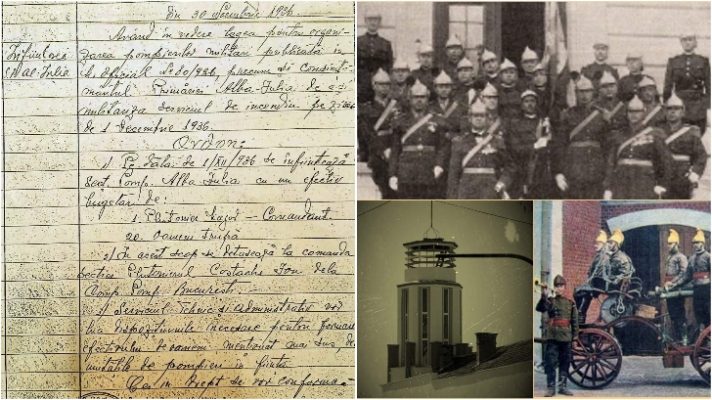 din 30 Decembrie 1936
Având în vedere Legea pentru organi-
Înființarea
zarea pompierilor militari publicată în
S. Alba-Iulia
M. Oficial No 80/936, precum și consimță-
mântul Primăriei Alba-Iulia de a
militariza serviciul de incendiu pe ziua
de 1 Decembrie 1936.
Ordăm:
1) Pe data de 1/XII/936 se înființează
Secț. Pomp. Alba Iulia cu un efectiv
bugetar de:
1. Plutonier Major – Comandant
20. Oameni trupă
2) În acest scop se detașează la comanda
secției Plutonierul Costache Ion dela
Comp. Pomp. București
3) Serviciul Tehnic și administrativ vor
lua dispozițiunile necesare pentru formarea
efectivului de oameni menționat mai sus, de
unitățile de pompieri în ființă
Cei în drept se vor conforma.